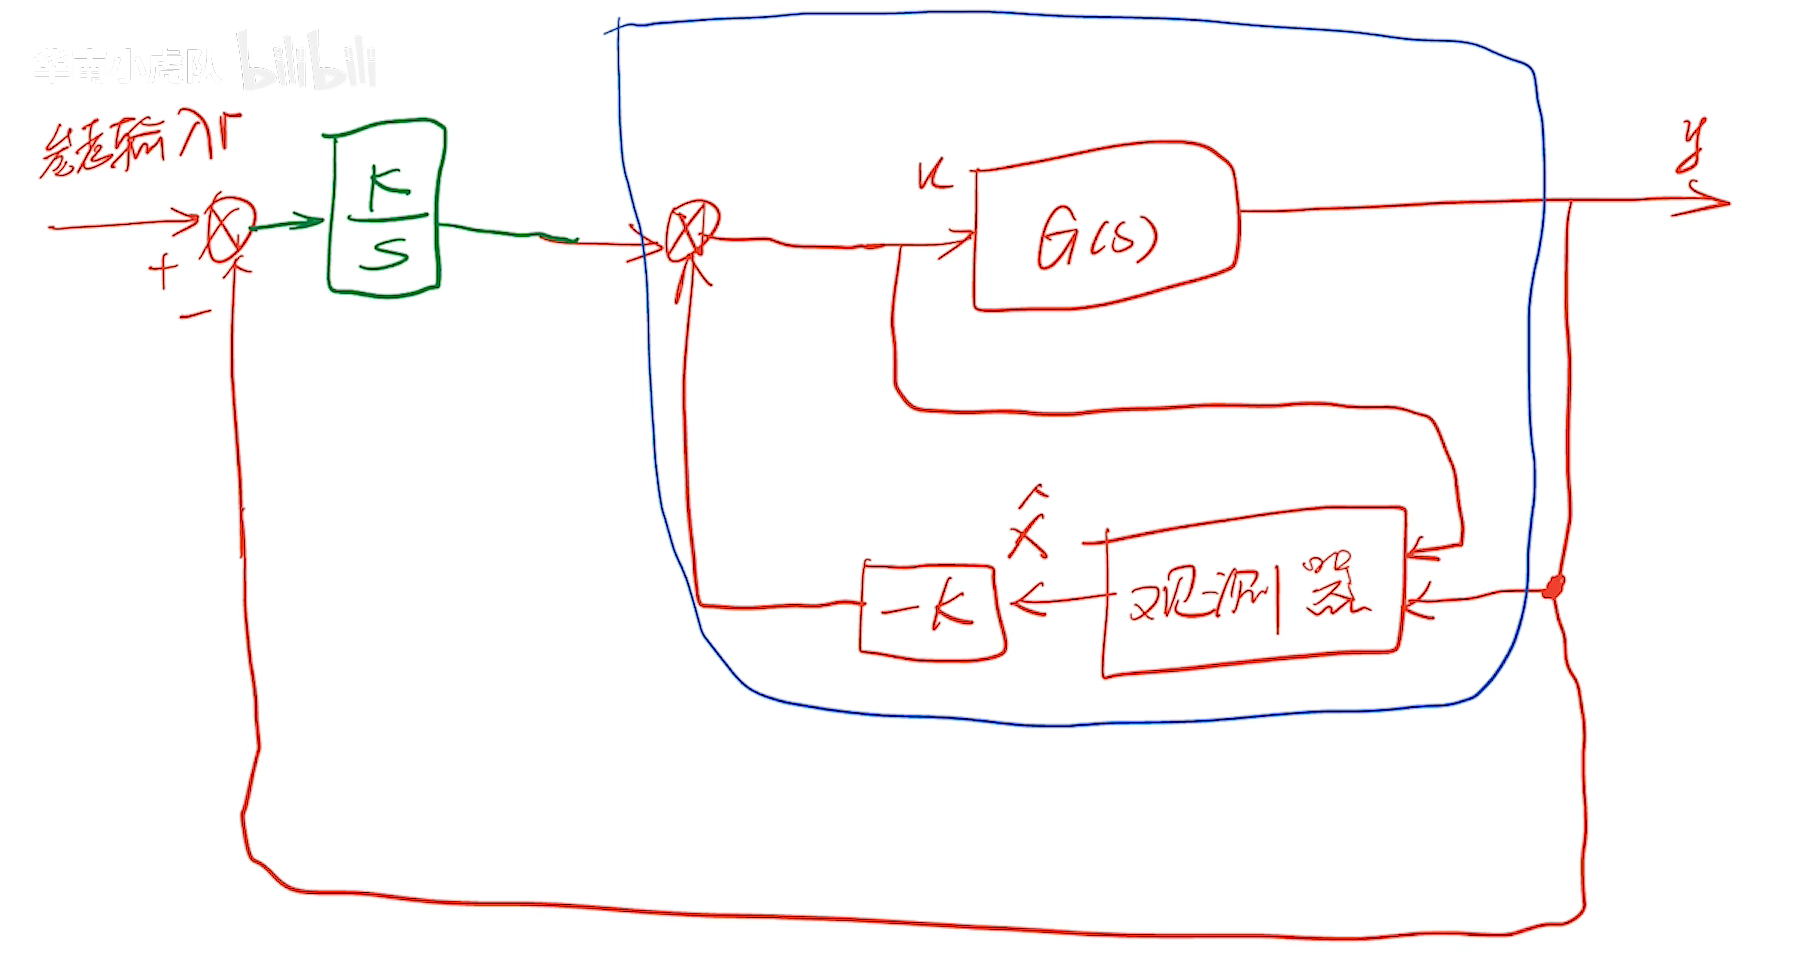 华南小虎队 bilibili
参考输入r
+
-
K
S
u
G(s)
y
x̂
-K
观测器